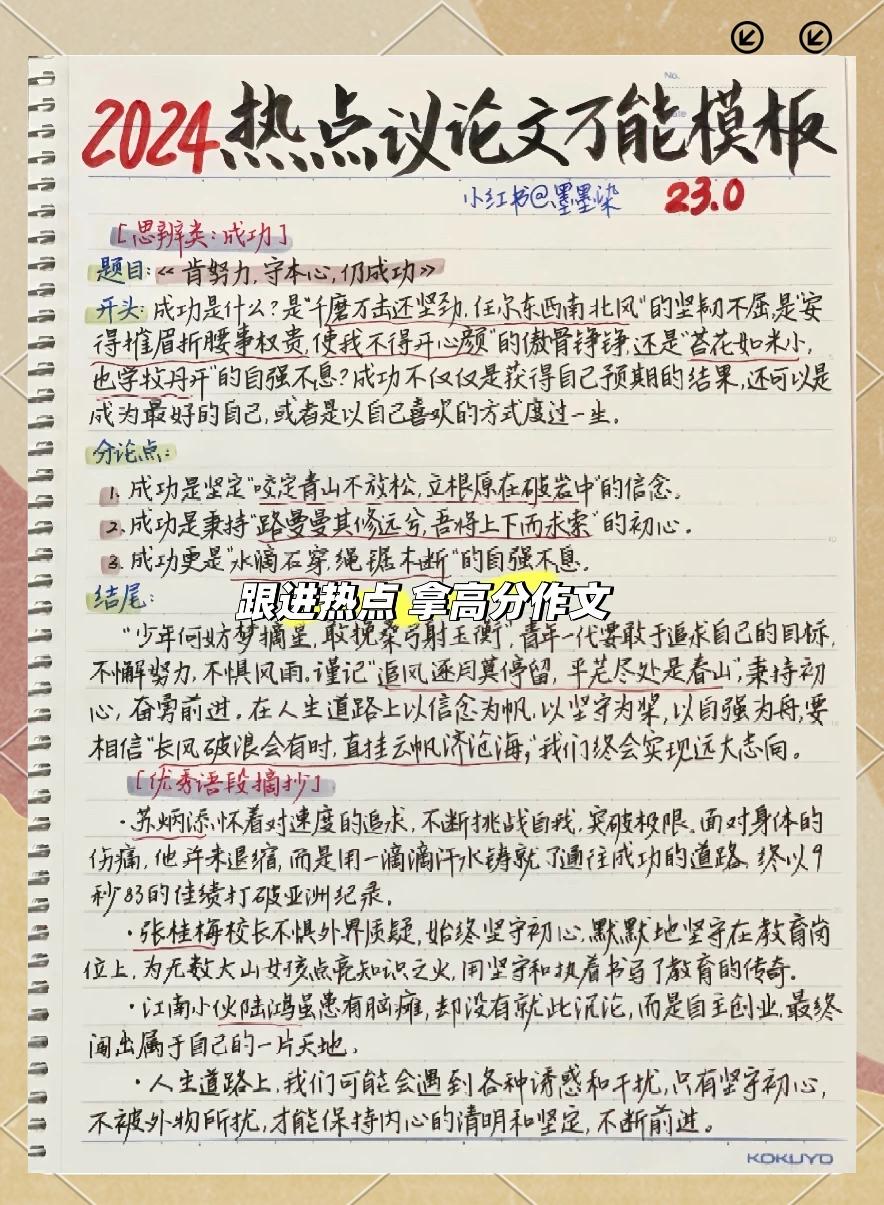 No.
2024热点议论文万能模板
小红书@墨墨染 23.0
[思辨类:成功]
题目:《肯努力,守本心,仍成功》
开头:成功是什么?是"千磨万击还坚劲,任尔东西南北风"的坚韧不屈,是"安
得摧眉折腰事权贵,使我不得开心颜"的傲骨铮铮,还是"苔花如米小,
也学牡丹开"的自强不息?成功不仅仅是获得自己预期的结果,还可以是
成为最好的自己,或者是以自己喜欢的方式度过一生。
分论点:
1. 成功是坚定"咬定青山不放松,立根原在破岩中"的信念。
2. 成功是秉持"路曼曼其修远兮,吾将上下而求索"的初心。
3. 成功更是"水滴石穿,绳锯木断"的自强不息。
结尾:
跟进热点 拿高分作文
"少年何妨梦摘星,敢挽桑弓射玉衡",青年一代要敢于追求自己的目标,
不懈努力,不惧风雨。谨记"追风逐月莫停留,平芜尽处是春山",秉持初
心,奋勇前进。在人生道路上以信念为帆,以坚守为桨,以自强为舟,要
相信"长风破浪会有时,直挂云帆济沧海,"我们终会实现远大志向。
[优秀语段摘抄]
·苏炳添怀着对速度的追求,不断挑战自我,突破极限。面对身体的
伤痛,他并未退缩,而是用一滴滴汗水铸就了通往成功的道路,终以9
秒83的佳绩打破亚洲纪录。
·张桂梅校长不惧外界质疑,始终坚守初心,默默地坚守在教育岗
位上,为无数大山女孩点亮知识之火,用坚守和执着书写了教育的传奇。
·江南小伙陆鸿虽患有脑瘫,却没有就此沉沦,而是自主创业,最终
闯出属于自己的一片天地。
·人生道路上,我们可能会遇到各种诱惑和干扰,只有坚守初心,
不被外物所扰,才能保持内心的清明和坚定,不断前进。
KOKUYO